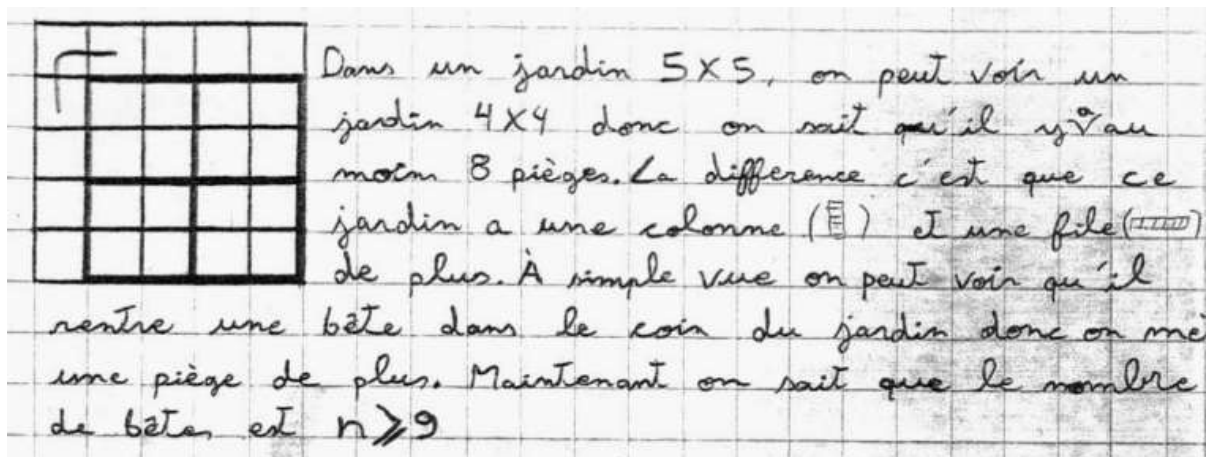 Dans un jardin 5X5, on peut voir un
jardin 4X4 donc on sait qu'il y a au
moins 8 pièges. La difference c'est que ce
jardin a une colonne ( ) et une file ( )
de plus. À simple vue on peut voir qu'il
rentre une bête dans le coin du jardin donc on me
une piège de plus. Maintenant on sait que le nombre
de bêtes est n ⩾ 9